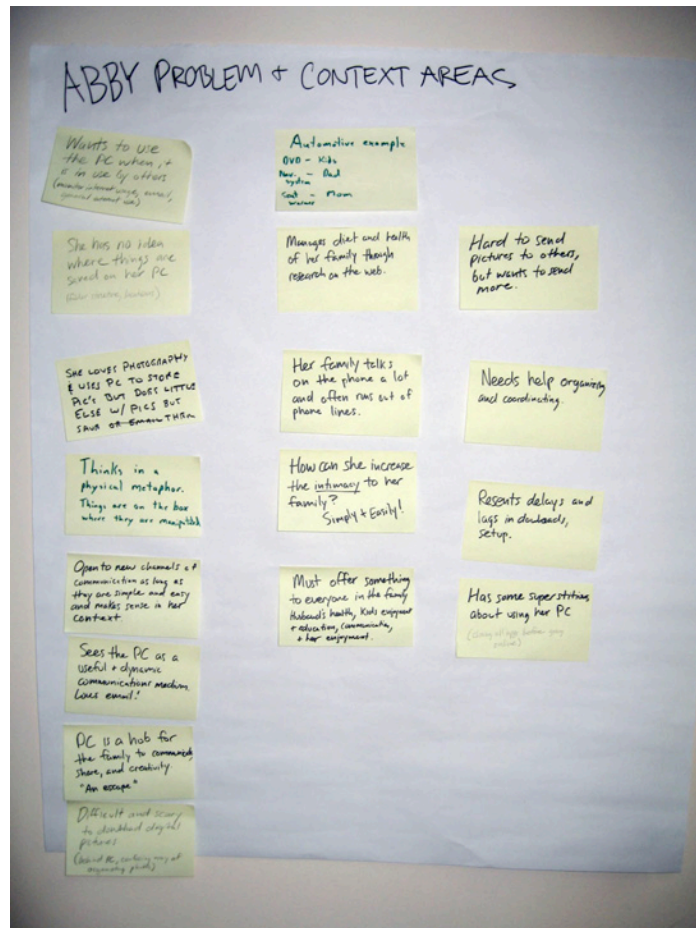 ABBY PROBLEM + CONTEXT AREAS
Wants to use
the PC when it
is in use by others
(monitor internet usage, email,
general internet use)
She has no idea
where things are
saved on her PC
SHE LOVES PHOTOGRAPHY
& USES PC TO STORE
PIC'S BUT DOES LITTLE
ELSE W/ PICS BUT
SAVE OR EMAIL THEM
Thinks in a
physical metaphor.
Things are on the box
where they are manipulated
Open to new channels of
communication as long as
they are simple and easy
and makes sense in her
context.
Sees the PC as a
useful + dynamic
communications machine.
Loves email!
PC is a hub for
the family to communicate,
share, and creativity.
"An escape"
Difficult and scary
to download digital
pictures.
organizing photos)
Automotive example
DVD - Kids
Nav. system - Dad
Seat warmer - Mom
Manages diet and health
of her family through
research on the web.
Her family talks
on the phone a lot
and often runs out of
phone lines.
How can she increase
the intimacy to her
family?
Simply + Easily!
Must offer something
to everyone in the family
Husband's health, Kids enjoyment
+ education, communication,
+ her enjoyment.
Hard to send
pictures to others,
but wants to send
more.
Needs help organizing
and coordinating.
Resents delays and
lags in downloads,
setup.
Has some superstitions
about using her PC